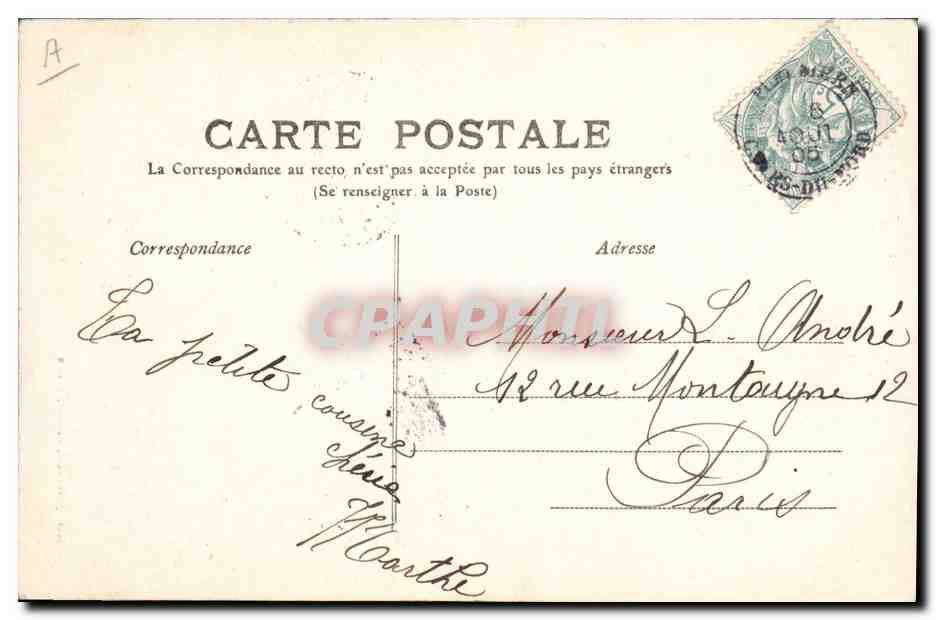 A
CARTE POSTALE
La Correspondance au recto n'est pas acceptée par tous les pays étrangers
(Se renseigner à la Poste)
6
AOUT
05
CÔTES-DU-NORD
Correspondance
Adresse
Ta petite
cousine
Marthe
Monsieur L. André
12 rue Montaigne 12
Paris
CPAPHIL